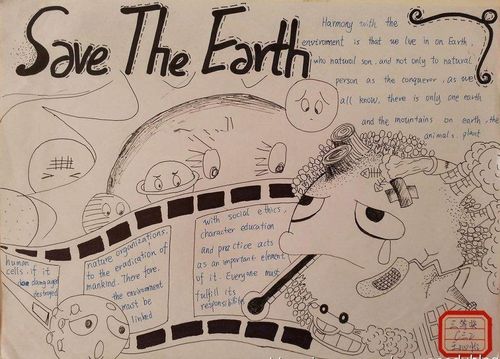 Save The Earth
Harmony with the
enviroment is that we live in on Earth,
who natural son, and not only to natural
person as the conquerer, as we
all know, there is only one earth
and the mountains on earth, the
animals. plant
human
cells. if it
damaged
destroyed
nature organizations,
to the eradication of
mankind. There fore,
the environment
must be
linked
with social ethics,
character education
and practice acts
as an important element
of it. Everyone must
fulfill its
responsibilities
三等奖